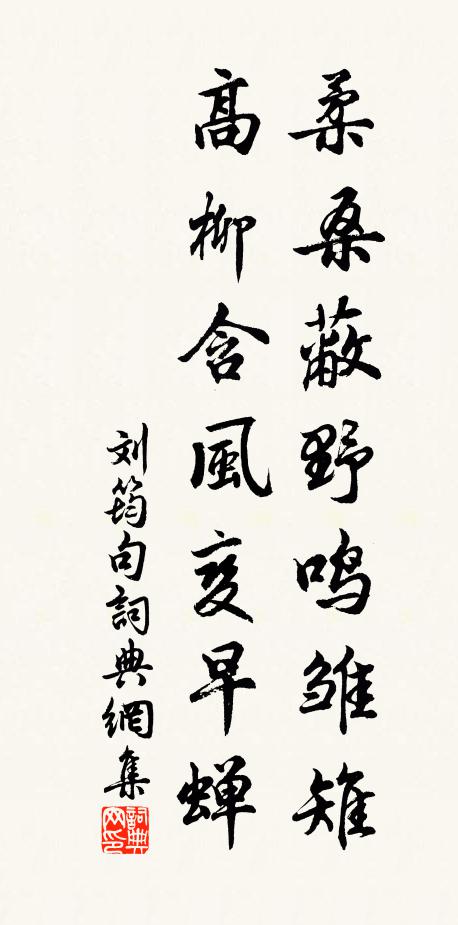 柔桑蔽野鸣雏雉
高柳含風变早蝉
刘筠句詞典網集
詞典网印